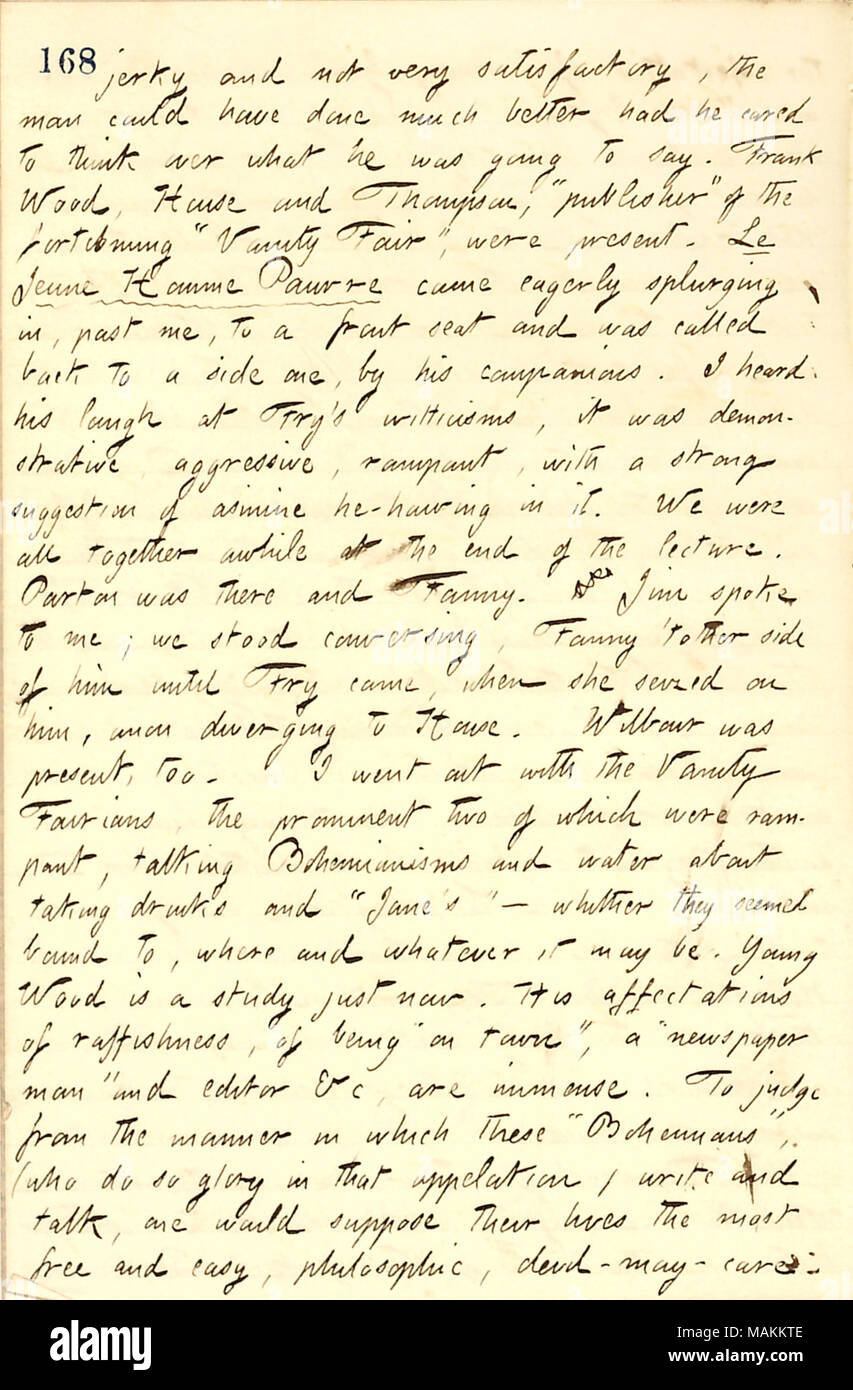 168 jerky and not very satisfactory, the
man could have done much better had he cared
to think over what he was going to say. Frank
Wood, House and Thompson, "publisher" of the
fortcoming "Vanity Fair", were present. Le
Jeune Homme Pauvre came eagerly splurging
in, past me, to a front seat and was called
back to a side one, by his companions. I heard
his laugh at Fry's witticisms, it was demon-
strative, aggressive, rampant, with a strong
suggestion of asinine he-hawing in it. We were
all together awhile at the end of the lecture.
Parton was there and Fanny. Jim spoke
to me; we stood conversing, Fanny 'tother side
of him until Fry came, when she seized on
him, anon diverging to House. Wilbour was
present, too. I went out with the Vanity
Fairians, the prominent two of which were ram-
pant, talking Bohemianisms and water about
taking drinks and "Jane's" — whither they seemed
bound to, where and whatever it may be. Young
Wood is a study just now. His affectations
of raffishness, of being "on town", a "newspaper
man" and editor &c, are immense. To judge
from the manner in which these "Bohemians",
(who do so glory in that appelation) write and
talk, one would suppose their lives the most
free and easy, philosophic, devil-may-care
alamy
Image ID: MAKKTE
www.alamy.com